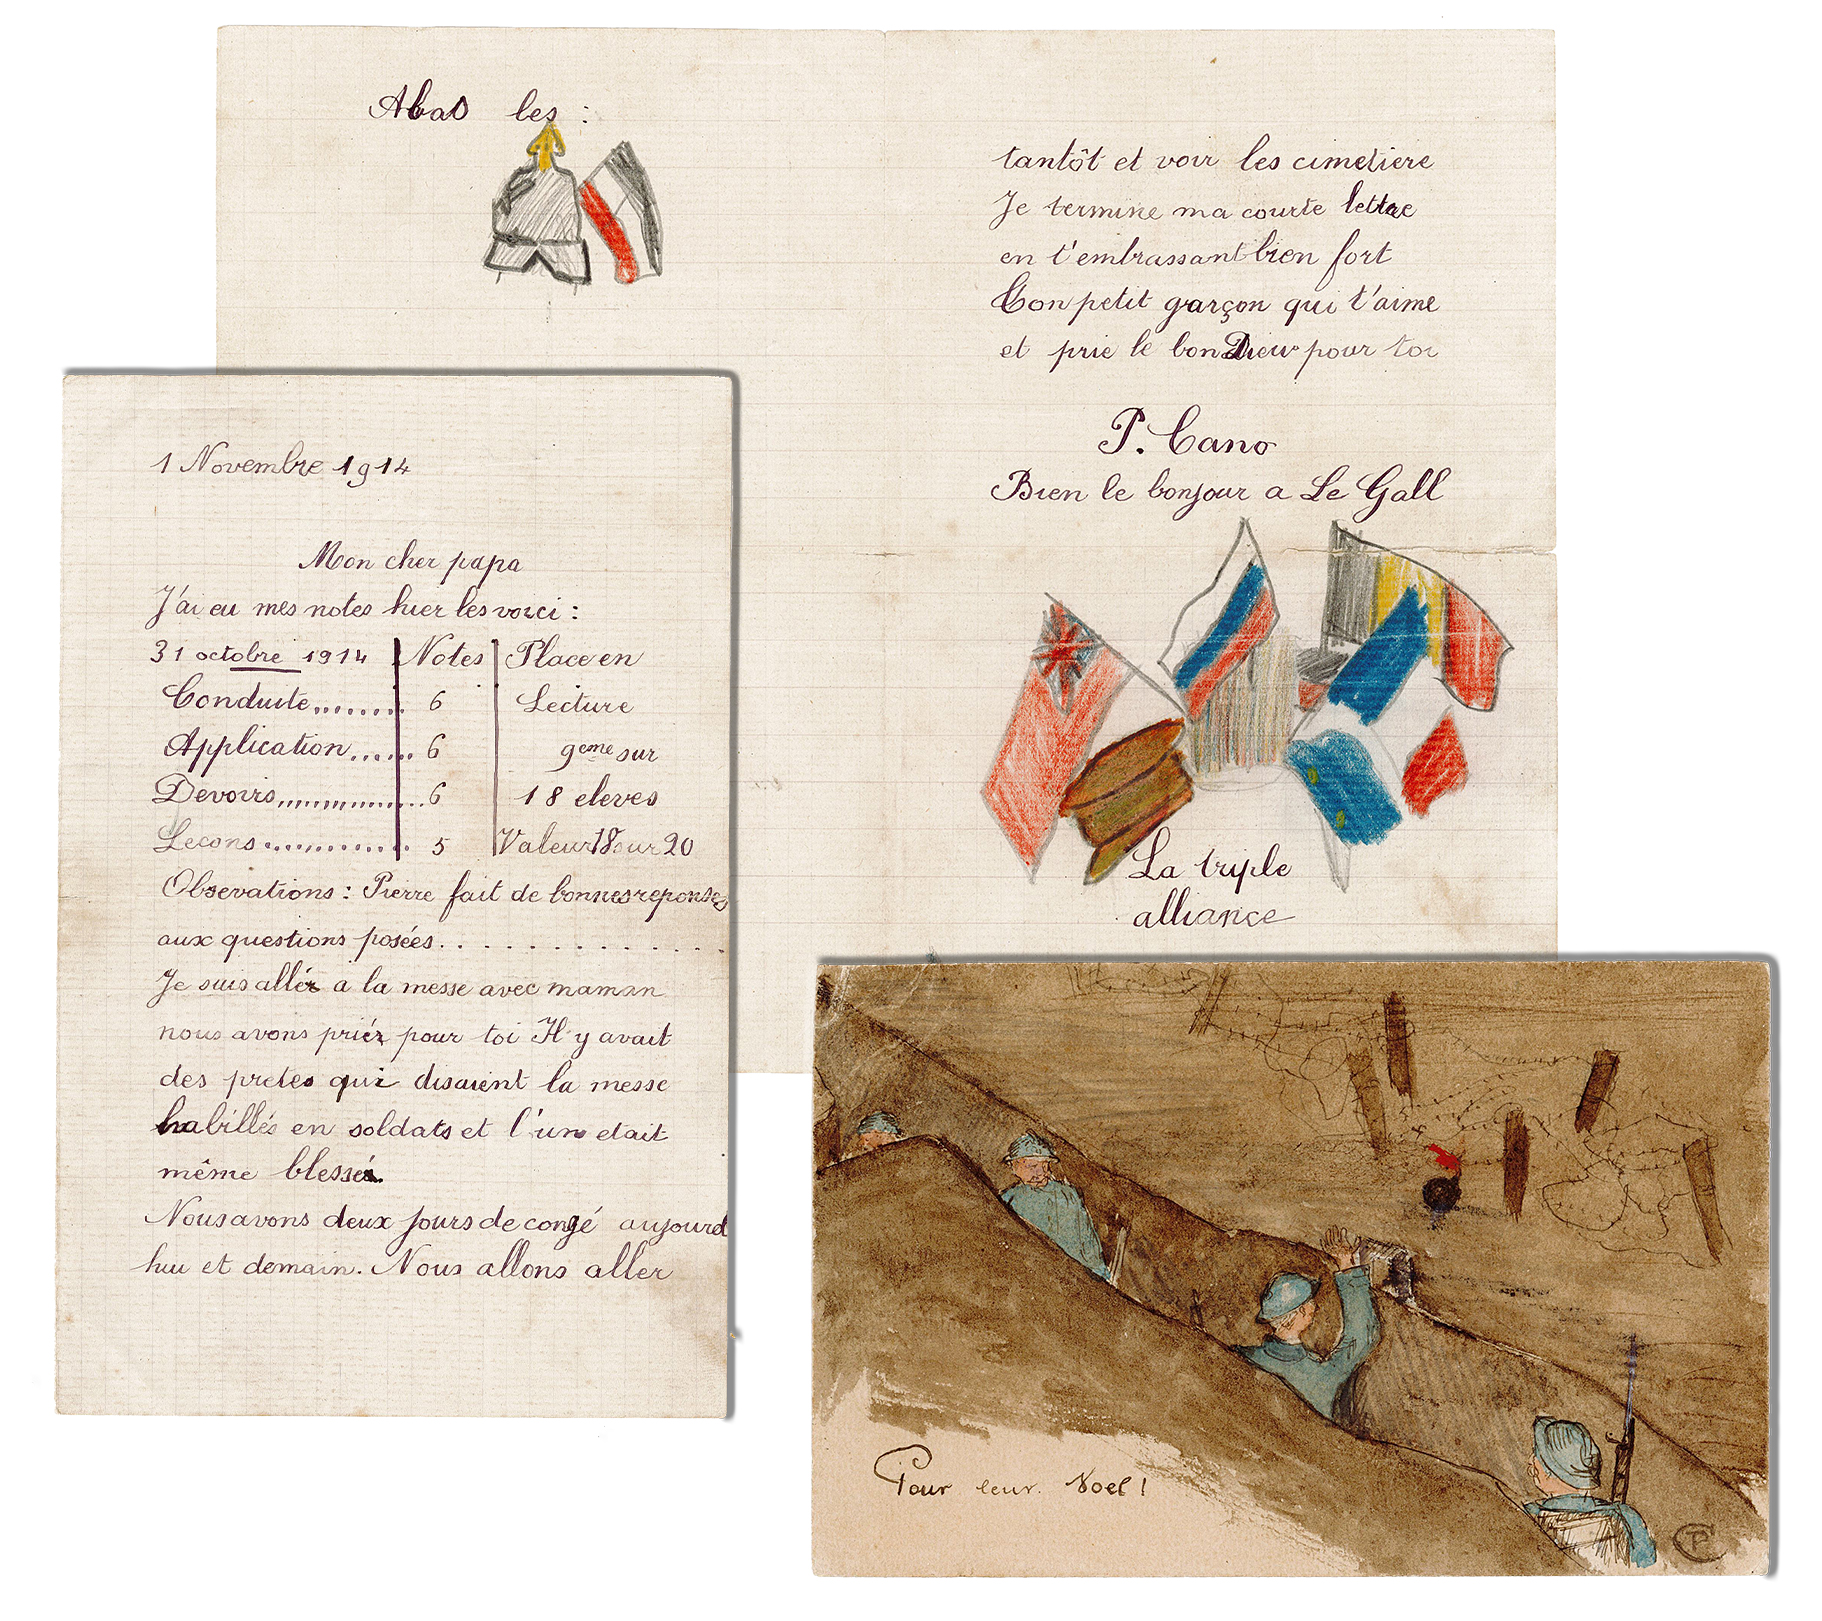 Abas les :
tantôt et voir les cimetiere
Je termine ma courte lettre
en t'embrassant bien fort
Ton petit garçon qui t'aime
et prie le bon Dieu pour toi
P. Cano
Bien le bonjour a Le Gall
La triple
alliance
1 Novembre 1914
Mon cher papa
J'ai eu mes notes hier les voici :
31 octobre 1914 Notes Place en
Conduite........ 6 Lecture
Application...... 6 9eme sur
Devoirs............... 6 18 eleves
Lecons............ 5 Valeur 18 sur 20
Obsevations : Pierre fait de bonnes reponses
aux questions posées. . . . . . . . . . . . .
Je suis allér a la messe avec maman
nous avons priér pour toi Il y avait
des pretes qui disaient la messe
habillés en soldats et l'un etait
même blessé.
Nous avons deux jours de congé aujourd
hui et demain. Nous allons aller
Pour leur Noel !
CP